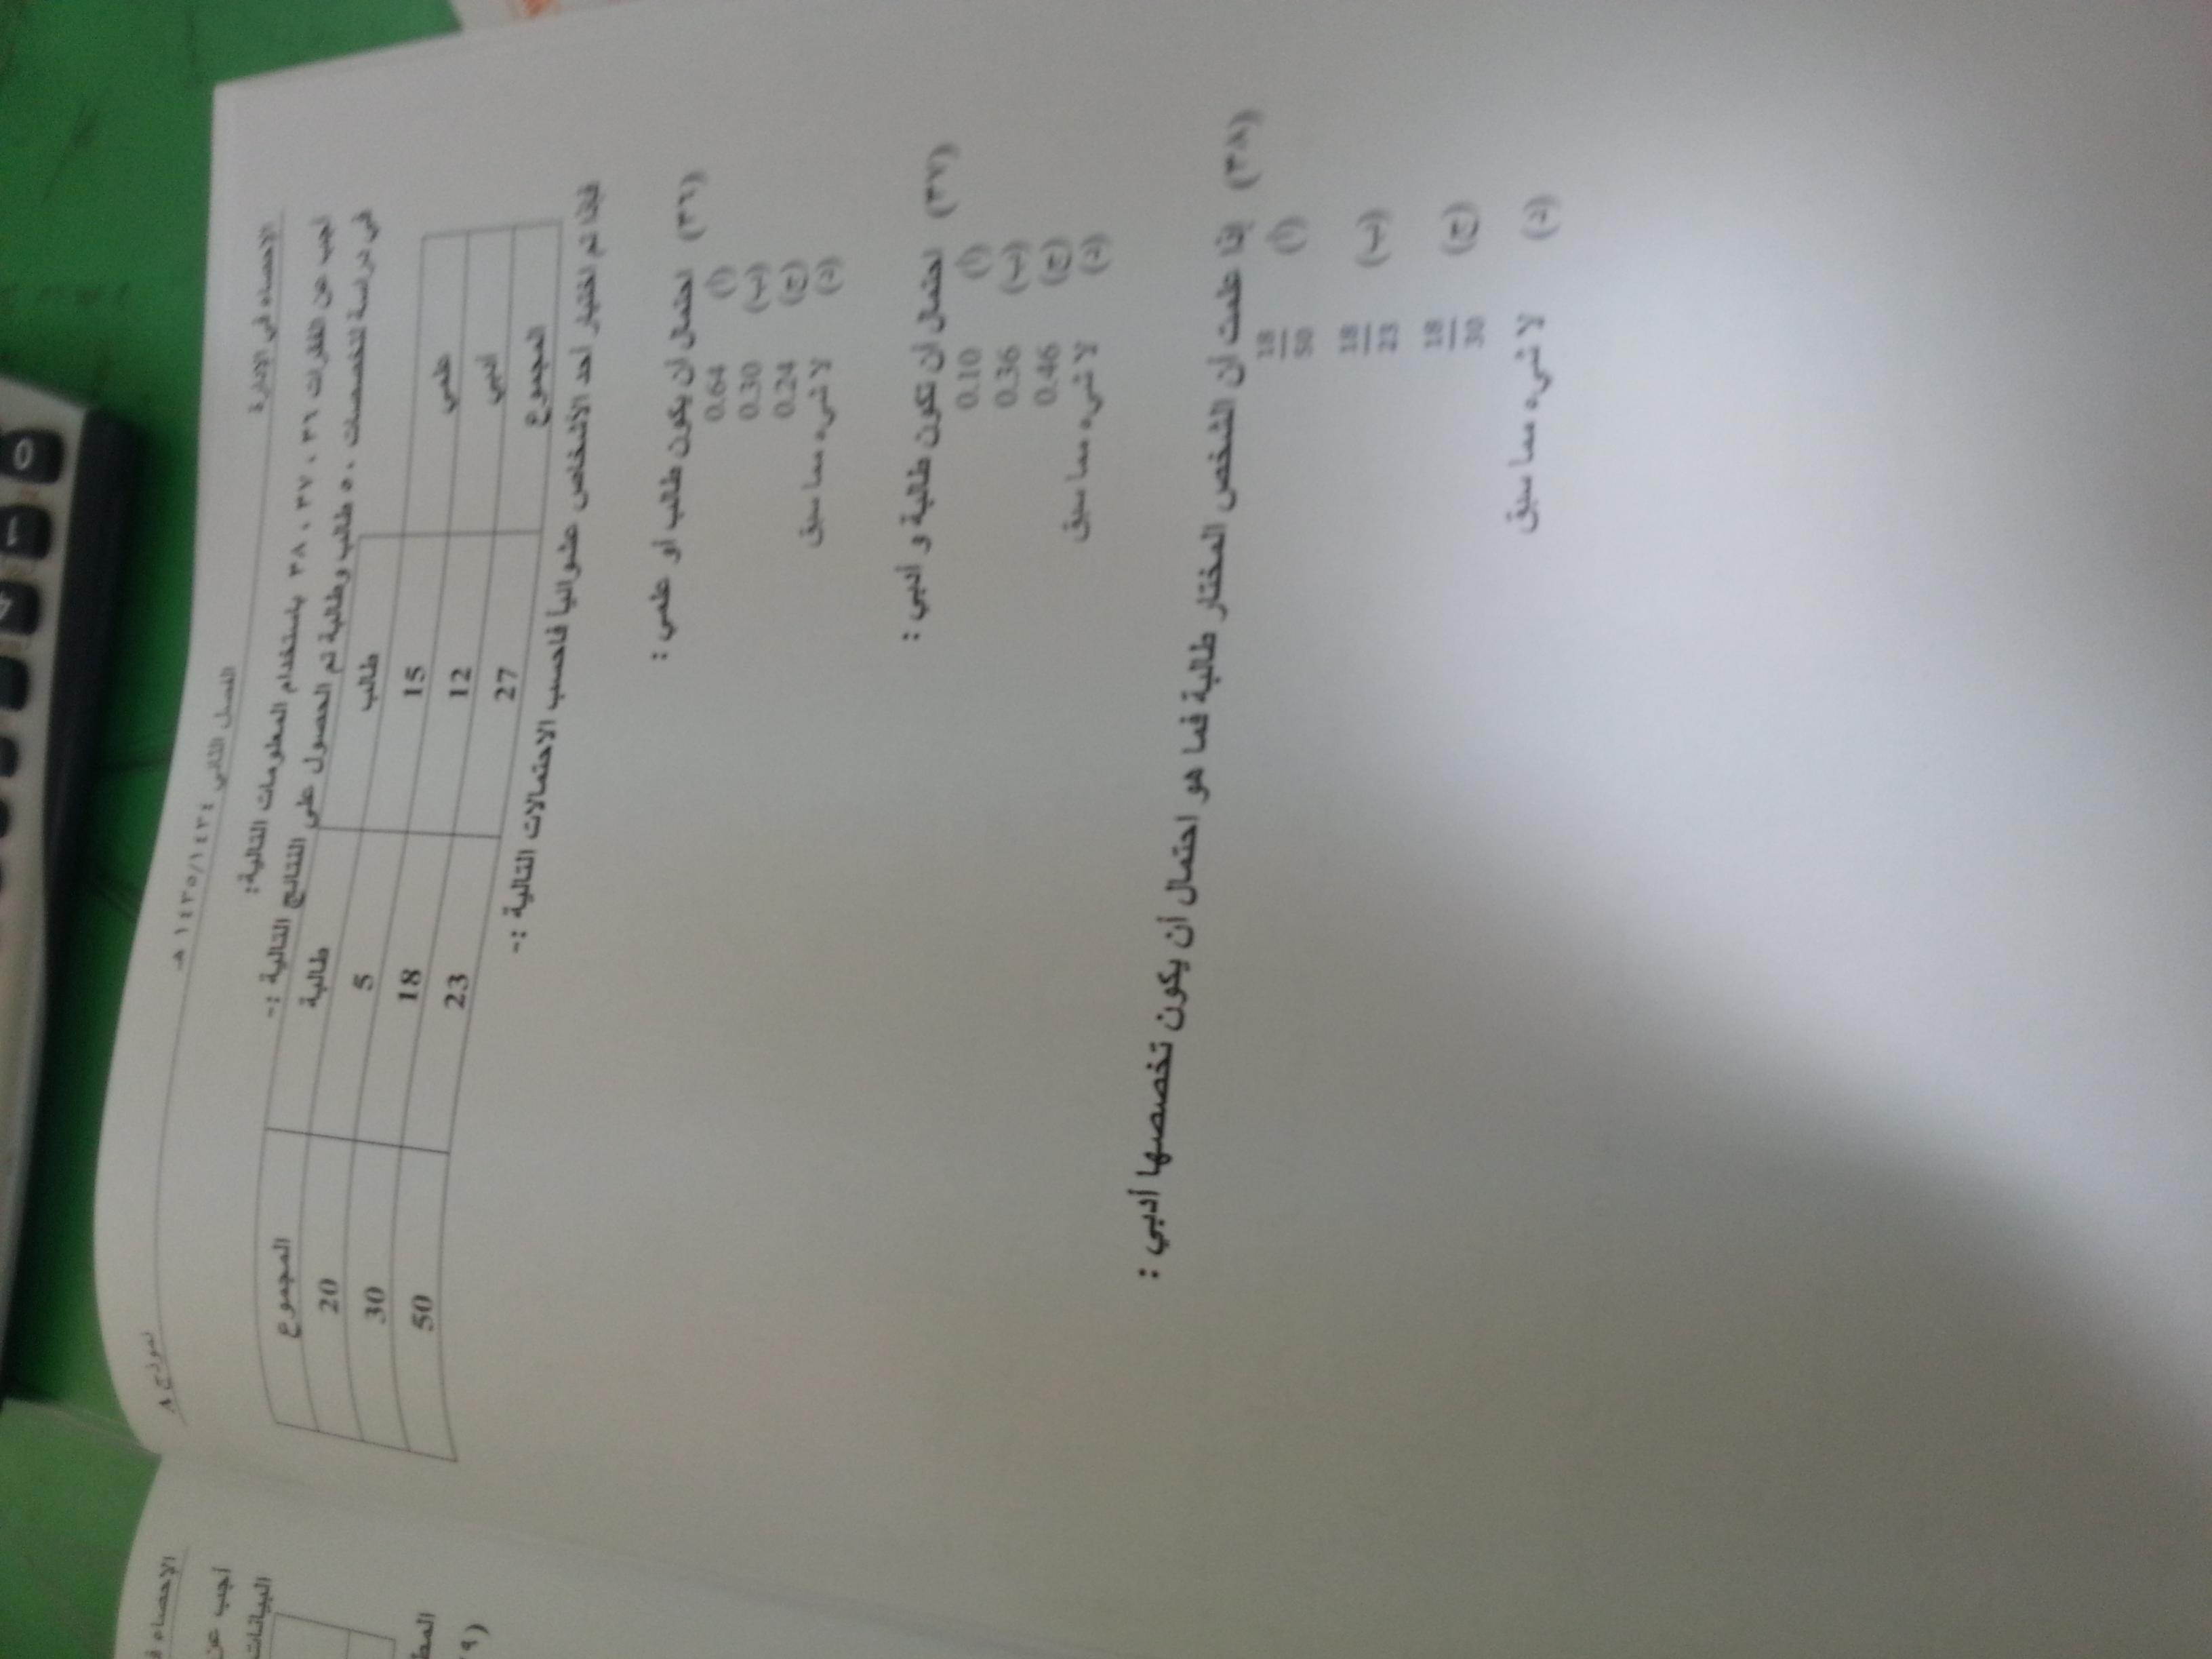 الإحصاء في الإدارة الفصل الثاني ١٤٣٥/١٤٣٤ هـ نموذج A
أجب عن الفقرات ٣٦ ، ٣٧ ، ٣٨ باستخدام المعلومات التالية:
في دراسة لتخصصات ٥٠ طالب وطالبة تم الحصول على النتائج التالية :-
طالب طالبة المجموع
علمي 15 5 20
أدبي 12 18 30
المجموع 27 23 50
فإذا تم اختيار أحد الأشخاص عشوائياً فاحسب الاحتمالات التالية :-
(٣٦) احتمال أن يكون طالب أو علمي :
(أ) 0.64
(ب) 0.30
(ج) 0.24
(د) لا شيء مما سبق
(٣٧) احتمال أن تكون طالبة و أدبي :
(أ) 0.10
(ب) 0.36
(ج) 0.46
(د) لا شيء مما سبق
(٣٨) إذا علمت أن الشخص المختار طالبة فما هو احتمال أن يكون تخصصها أدبي :
(أ) 18/50
(ب) 18/23
(ج) 18/30
(د) لا شيء مما سبق
الإحصاء
أجب عن
البيانات